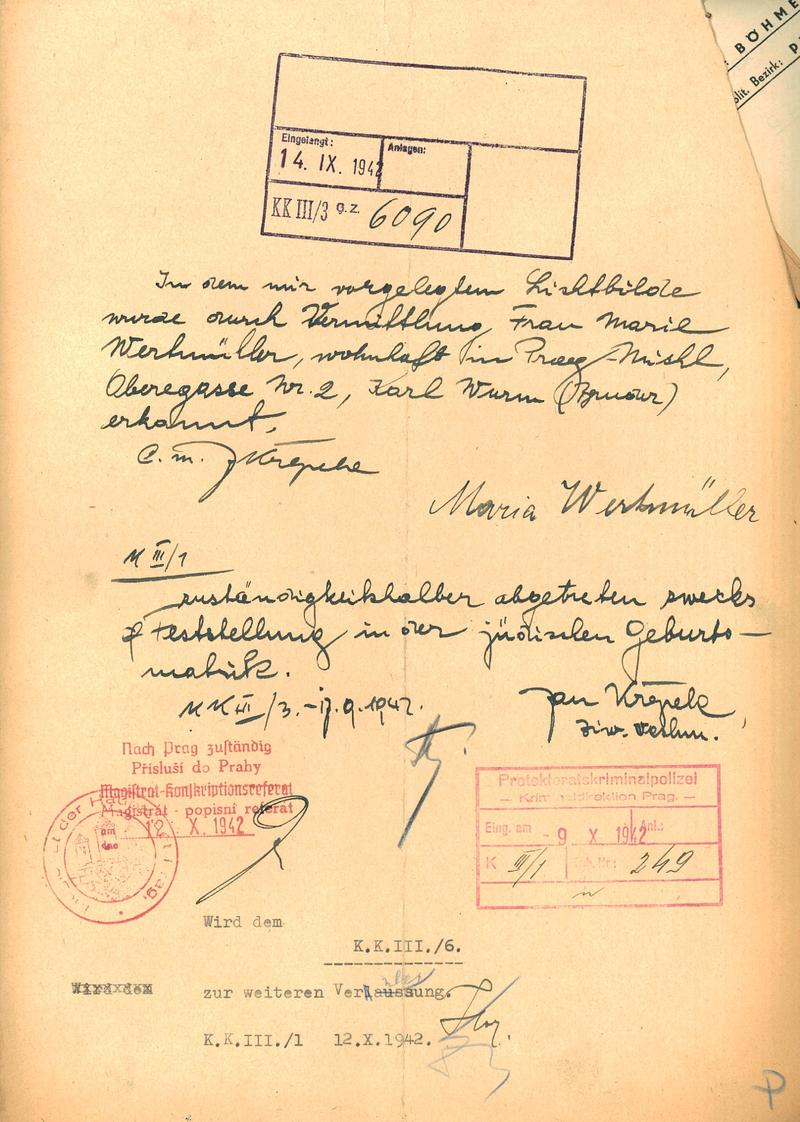 BÖHME
olit. Bezirk: P
Eingelangt:
Anlagen:
14. IX. 1942
KK III/3 g.z. 6090
In dem mir vorgelegtem Lichtbilde
wurde durch Vermittlung Frau Marie
Wertmüller, wohnhaft in Prag-Nuskl,
Oberegasse Nr. 2, Karl Wurm (Bruder)
erkannt.
C. m. J Křepela
Maria Wertmüller
K III/1
zuständigkeitshalber abgetreten zwecks
Feststellung in der jüdischen Geburts-
matrik.
KK III/3. - 17.9.1942.
Jan Křepela
Nach Prag zuständig
Přísluší do Prahy
Magistrat-Konskriptionsreferat
Magistrát - popisní referát
am
dne
12 X. 1942
der Ha
Protektoratskriminalpolizei
— Kriminaldirektion Prag. —
Eing. am - 9 X. 1942 Anl.:
K III/1 249
Wird dem
K.K.III./6.
Wird dem zur weiteren Veranlassung.
K.K.III./1 12.X.1942.
P